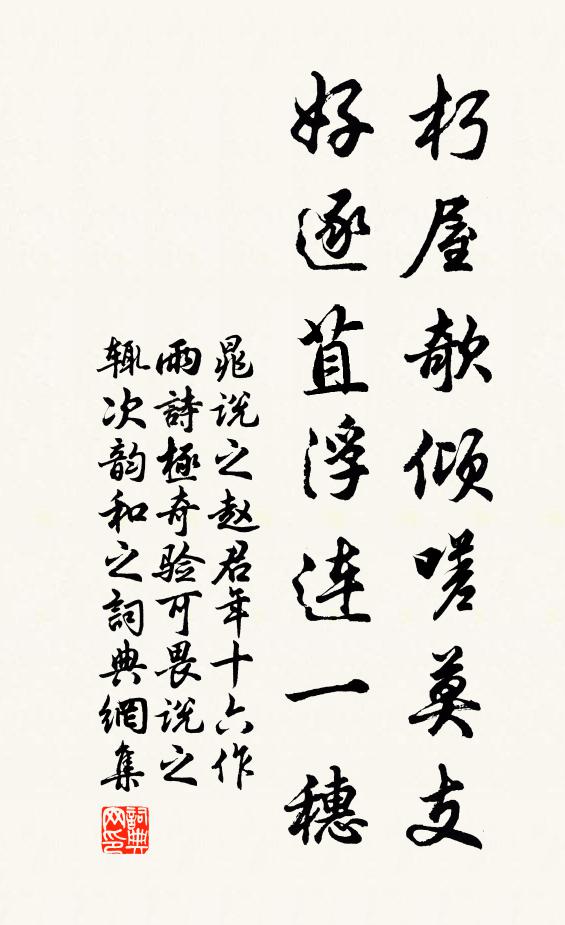 朽屋欹倾嗟莫支
好逐苴浮连一穗
晁说之赵君年十六作
雨詩極奇验可畏说之
辄次韵和之詞典網集
詞典网印